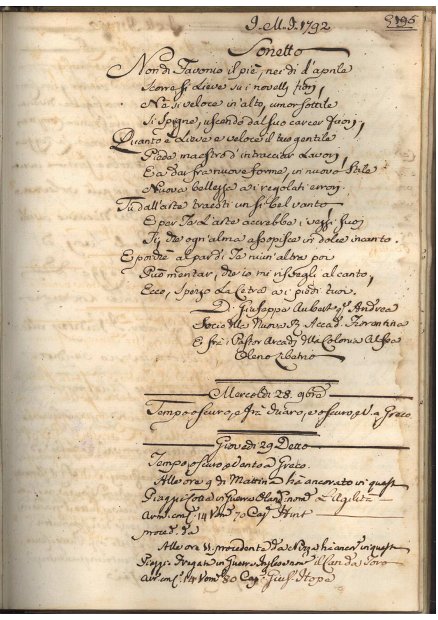 J. M. J. 1792 196
Sonetto
Non di Favonio il piè, nei dì d'aprile
Scorre sì lieve su i novelli fiori,
Nè sì veloce in alto, umor sottile
Si spigne, uscendo dal suo carcer fuori,
Quanto è lieve e veloce il tuo gentile
Piede maestro d'intrecciar lavori,
E a dar fra nuove forme, in nuovo stile
Nuova bellezza a i regolati errori.
Tu dall'arte traesti un sì bel vanto
E per Te l'arte accrebbe i vezzi suoi
Tu, che ogn'alma assopisce in dolce incanto.
E poichè al par di Te niun'altra poi
Può mentar, che io mi risvegli al canto,
Ecco, spezzo la Cetra a i piedi tuoi.
D. Giuseppe Aubert q. Andrea
Socio della Nuova R. Accad. Fiorentina
E frà i Pastor Arcadi della Colonia Alfea
Oleno
Mercoldì 28. 9bre
Tempo oscuro, e oscuro, e V. a Greco
Giovedì 29 Detto
Tempo oscuro e Vento a Greco.
Alle ore 9 di Mattina hà ancorato in quest
Piaggia in Guerra Oland. nom.
Arm. con C. 14 Uom. 70 Cap. Hint
proced. da
Alle ore 11. procedente da Nizza hà ancor. in quest
Piaggia Fregata in Guerra Inglese nom.
Arm. con C. 14 Uom. 80 Cap. Gius. Hope